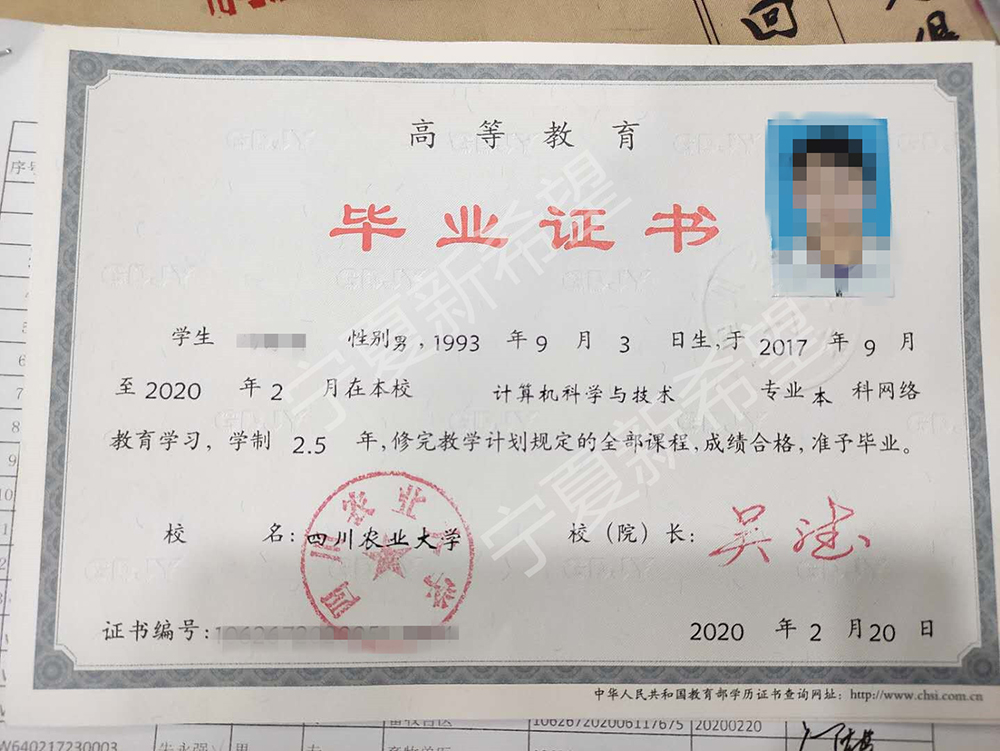 回
序号
高等教育
毕业证书
学生 性别男，1993 年9 月 3 日生，于 2017 年 9 月
至2020 年 2 月在本校 计算机科学与技术 专业本 科网络
教育学习，学制 2.5 年，修完教学计划规定的全部课程，成绩合格，准予毕业。
校 名：四川农业大学 校（院）长：
四川农业大学
证书编号：
2020 年 2 月 20 日
中华人民共和国教育部学历证书查询网址：http://www.chsi.com.cn
宁夏新希望
宁夏新希望
106267202006117675 20200220
W640217230003 朱永强 男 专